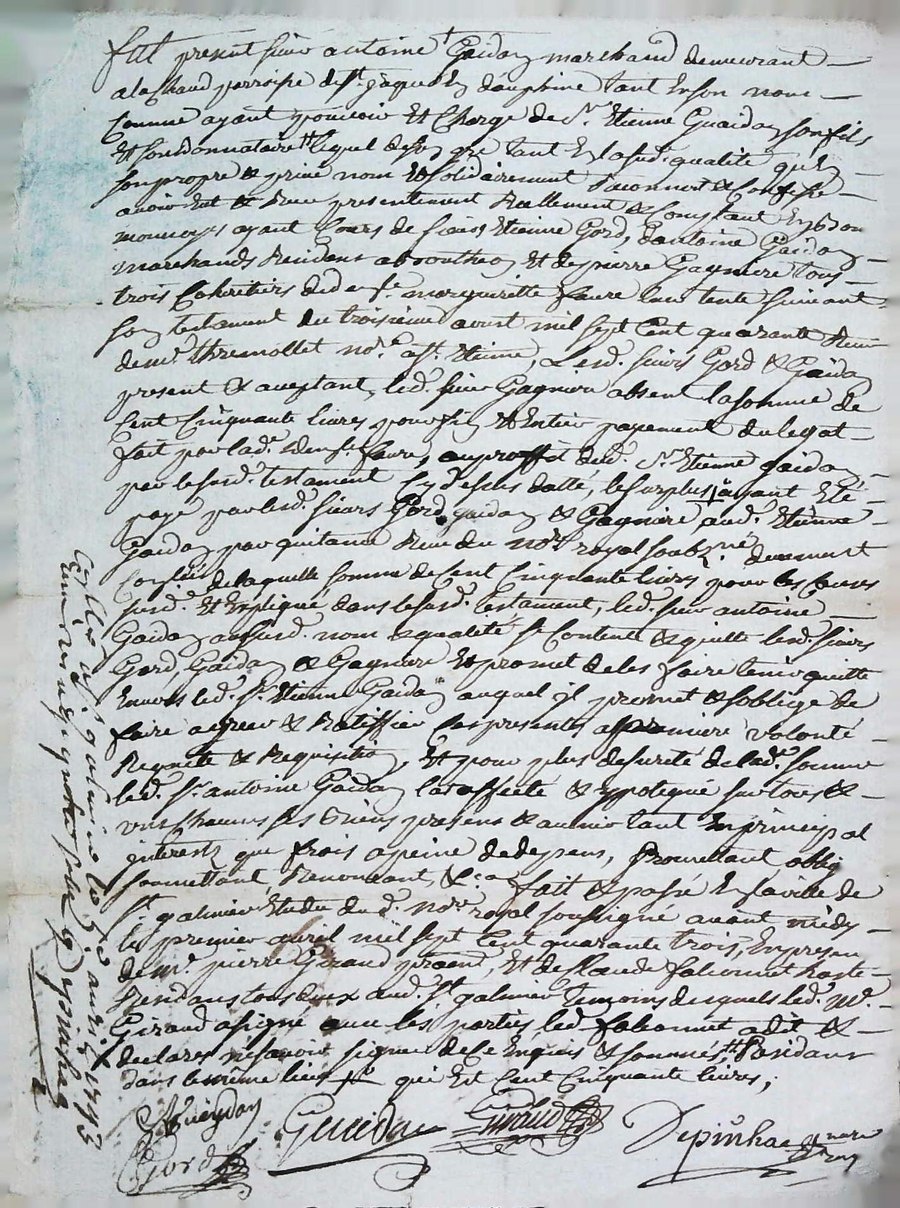 fut présent sieur antoine † Gaidon marchand demeurant
a la Chaud parroisse de st. jaque En dauphiné tant En son nom
Comme ayant pouvoir et Charge de Sr. Etienne Guaidon son fils
Et son donnataire lequel de son gré tant En la sud. qualité qu'En
son propre & privé nom Et solidairement a reconnu & Confessé
avoir Eut & Receu presentement Reallement & Comptant En
monnoyes ayant Cours de sieurs Etienne Gord, d'antoine Gaidon
marchands Residens a & de pierre Gagniere tous
trois Coheritiers de def.te marguerite faure leur tente suivant
son testament du troisième avril mil sept Cent quarante
de me. thremollet nore. a st. Etienne, Lesd. sieurs Gord & Gaidon
present & aceptant, led. sieur Gagniere absent la somme de
Cent Cinquante livres pour fin & Entier payement du legat
fait par lad. def.te faure, au proffit dud. Sr. Etienne gaidon
par le susd. testament Cy dessus datté, le surplus ayant Eté
payé par lesd. sieurs Gord, gaidon & Gagniere aud. Etienne
Gaidon par quittance Receu du nore royal soubzné. duement
Conllée de laquelle somme de Cent Cinquante livres pour les Causes
susd. Et Expliqué dans le susd. testament, led. sieur antoine
Gaidon au susd. nom & qualité se Contente & quitte lesd. sieurs
Gord, Gaidon & Gagniere Et promet de les faire tenir quitte
Envers led. sr. Etienne Gaidon auquel il promet & s'obligé de
faire agréer & Ratiffier Ces presentes a premiere volonté
Requete & Requisition, Et pour plus de sureté de lad. somme
led. sr. antoine Gaidon l'a affecté & hypotequé sur tous &
uns Chacuns ses biens presens & avenir tant En principal
interests que frois a peine de depens, Promettant oblig
soumettant, Renonceant, &ca. fait & passé En la ville de
st. galmier Etude du d. nore. royal soussigné avant midy
le premier avril mil sept Cent quarante trois, En presen
de me. pierre Giraud praend, Et de Claude falconnet
Residans tous deux aud. st. galmier temoins desquels led. me.
Giraud a signé avec les parties led. falconnet a dit &
declaré ne savoir signer de Ce Enquis & sommés, ‡ Residans
dans le même lieu ‡ qui Est Cent Cinquante livres,
Gueydon Gueidon Giraud Depinhac nore roy
Gord
Conllé a st. galmier le 5e. avril 1743